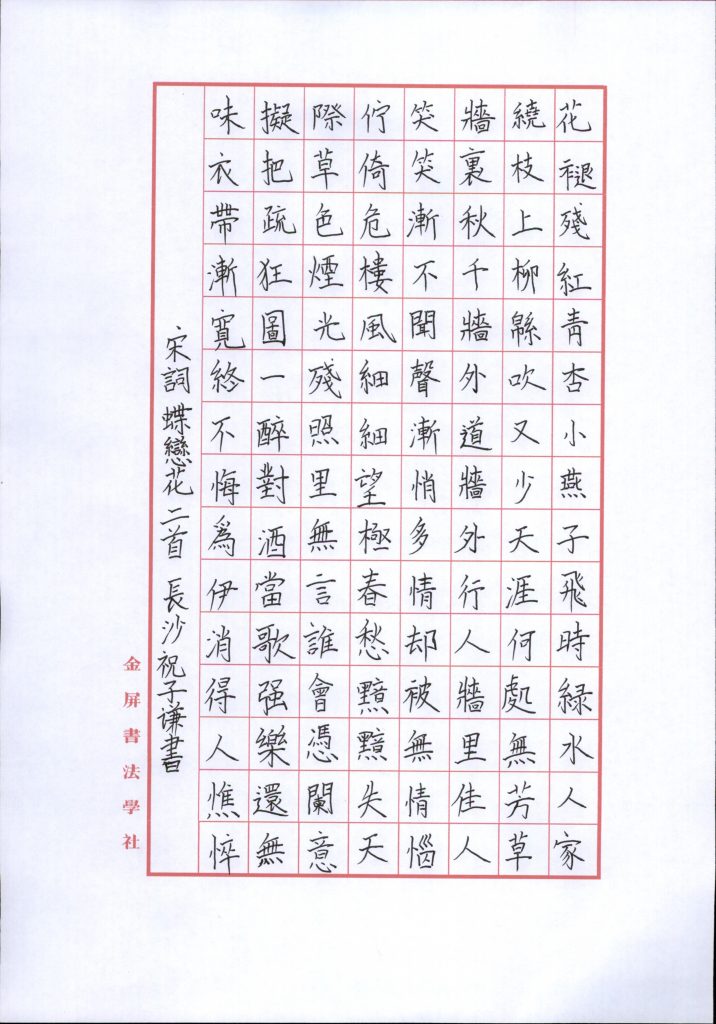 花褪殘紅青杏小燕子飛時緑水人家
繞枝上柳緜吹又少天涯何處無芳草
牆裏秋千牆外道牆外行人牆里佳人
笑笑漸不聞聲漸悄多情却被無情惱
佇倚危樓風細細望極春愁黯黯失天
際草色煙光殘照里無言誰會憑闌意
擬把疏狂圖一醉對酒當歌强樂還無
味衣帶漸寬終不悔爲伊消得人憔悴
宋詞 蝶戀花 二首 長沙祝子谦書
金屏書法學社